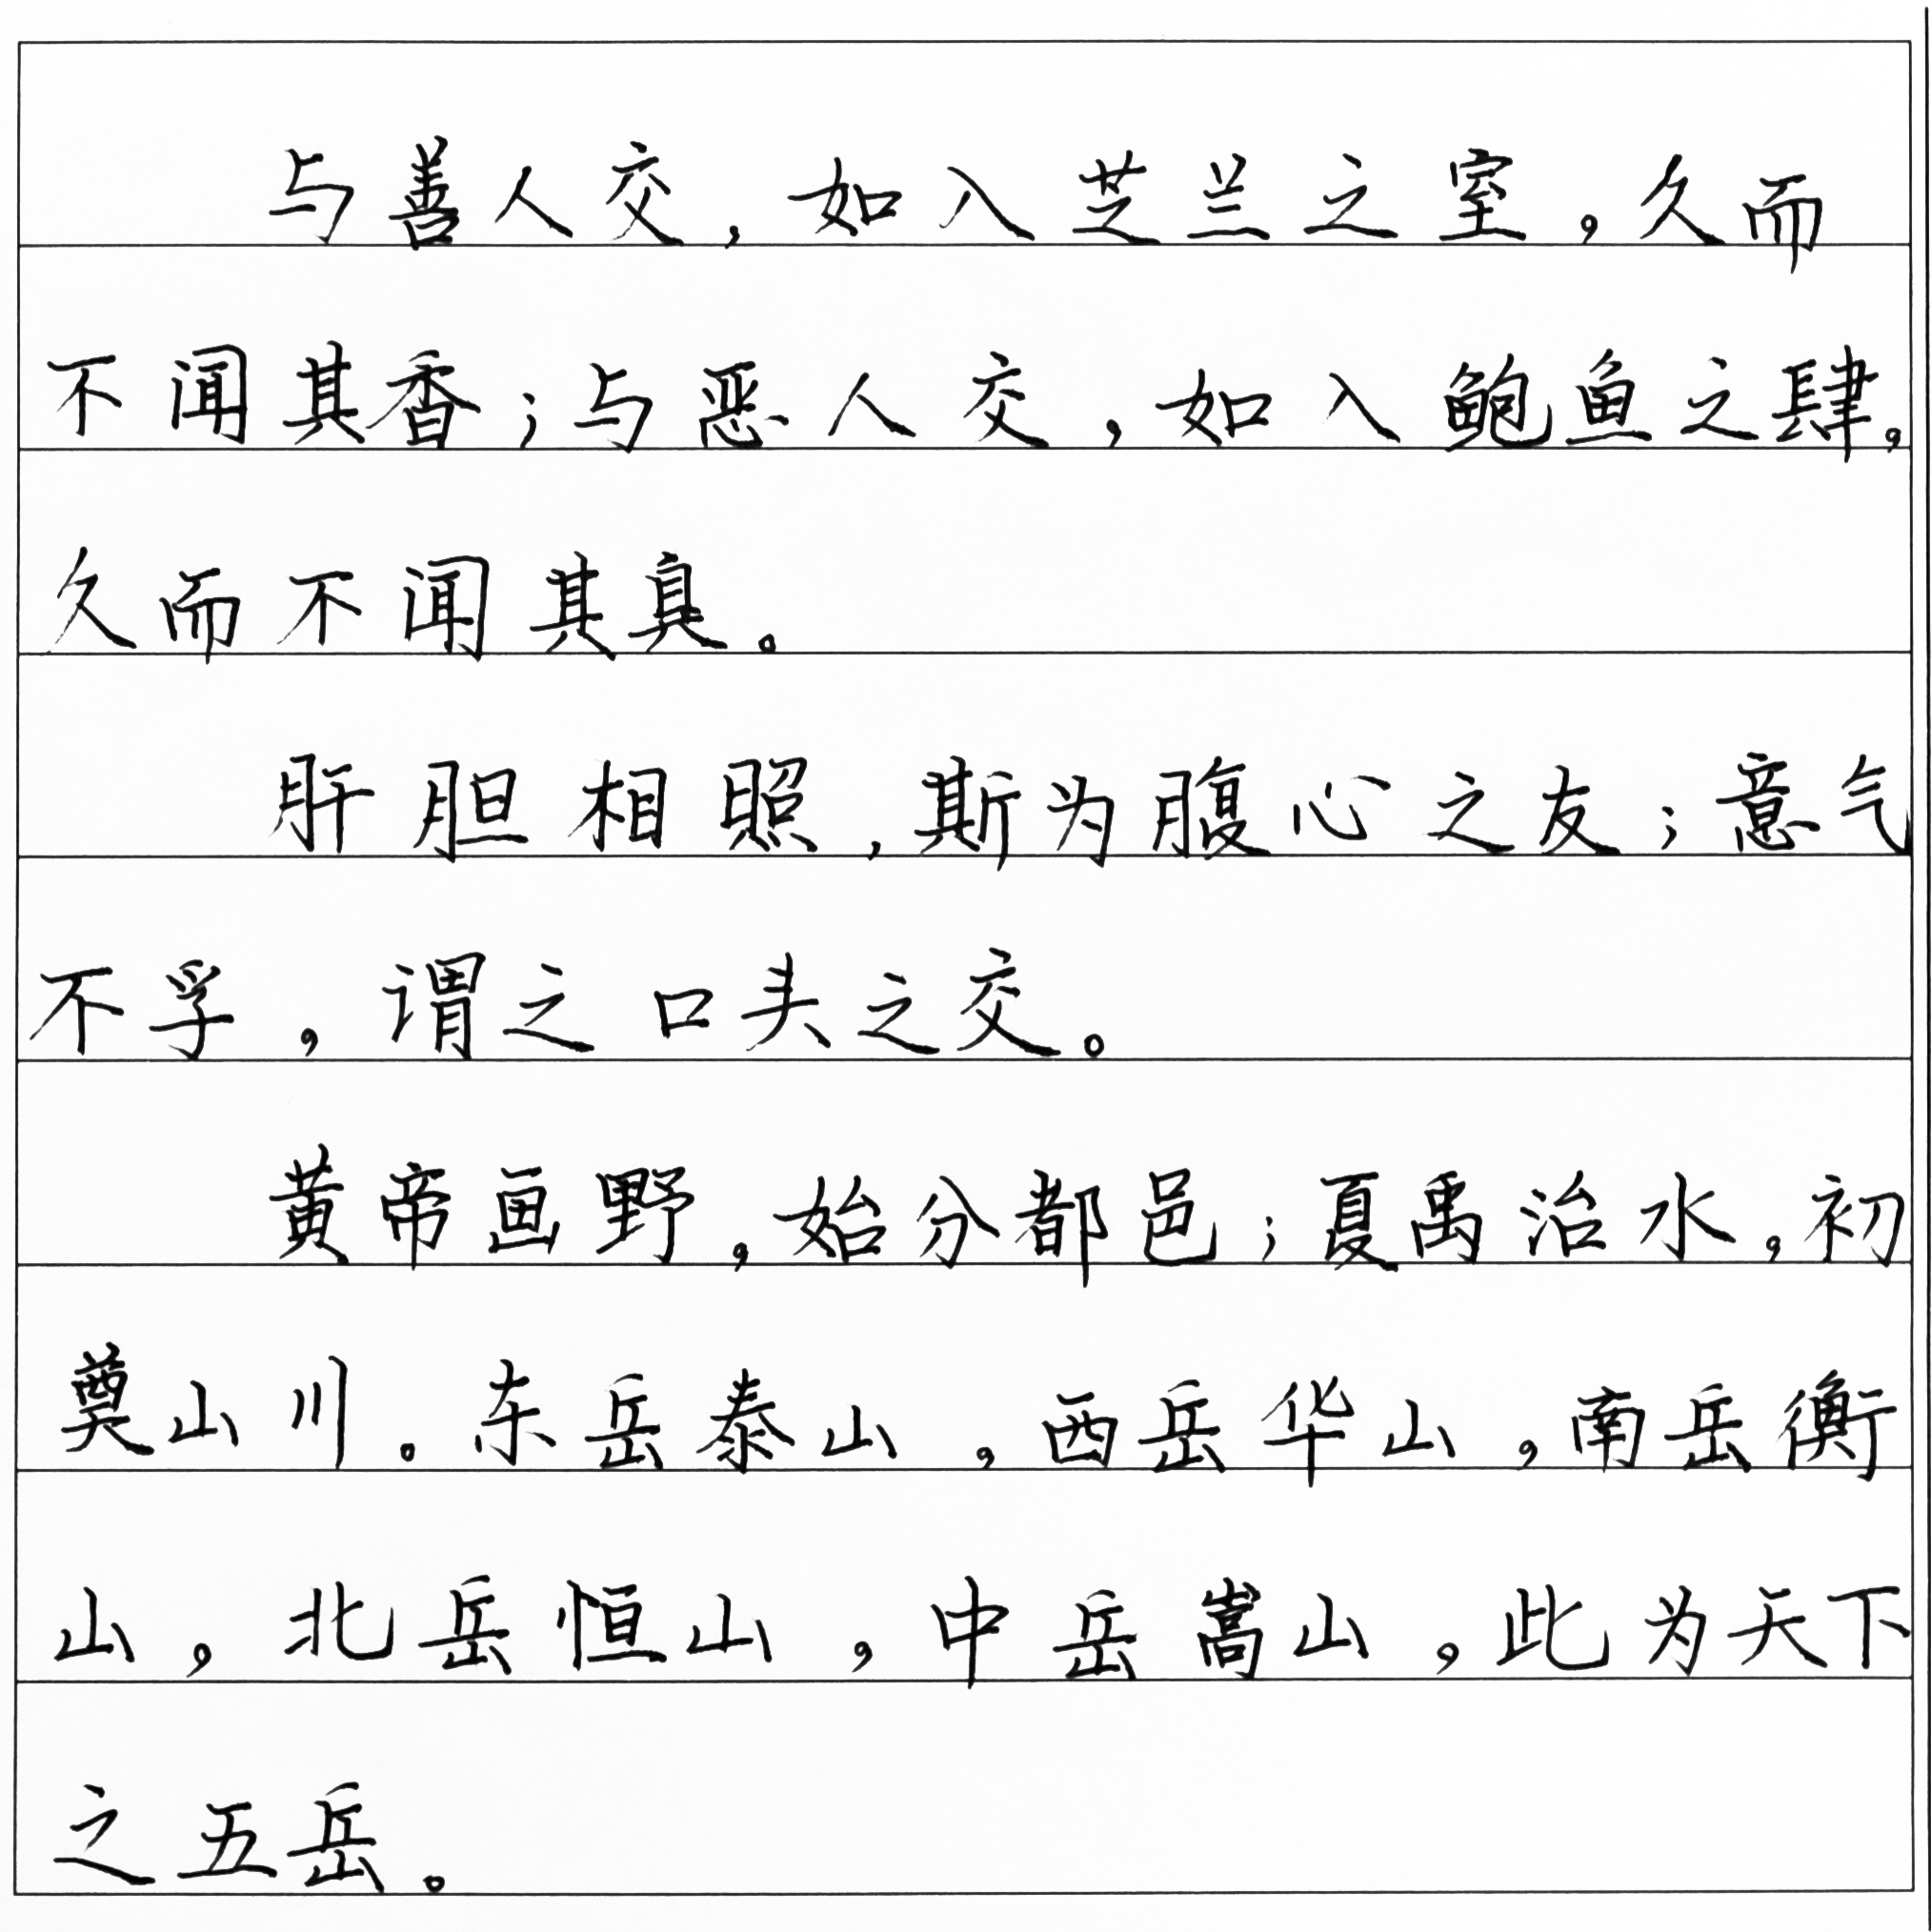 与善人交，如入芝兰之室，久而
不闻其香；与恶人交，如入鲍鱼之肆，
久而不闻其臭。
肝胆相照，斯为腹心之友；意气
不孚，谓之口头之交。
黄帝画野，始分都邑；夏禹治水，初
奠山川。东岳泰山，西岳华山，南岳衡
山，北岳恒山，中岳嵩山，此为天下
之五岳。